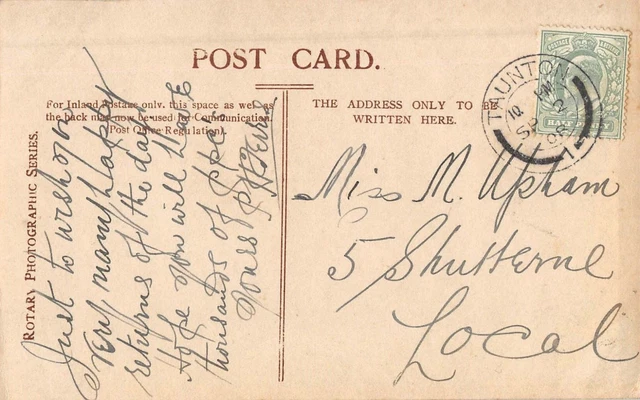 POST CARD.
For Inland Postage only, this space as well as
the back may now be used for Communication.
(Post Office Regulation).
THE ADDRESS ONLY TO BE
WRITTEN HERE.
ROTARY PHOTOGRAPHIC SERIES.
TAUNTON
08
HALFPENNY
Just to wish you
very many happy
returns of the day
Hope you will have
thousands of ppc.
Yours
Miss M. Upham
5 Shutterne
Local